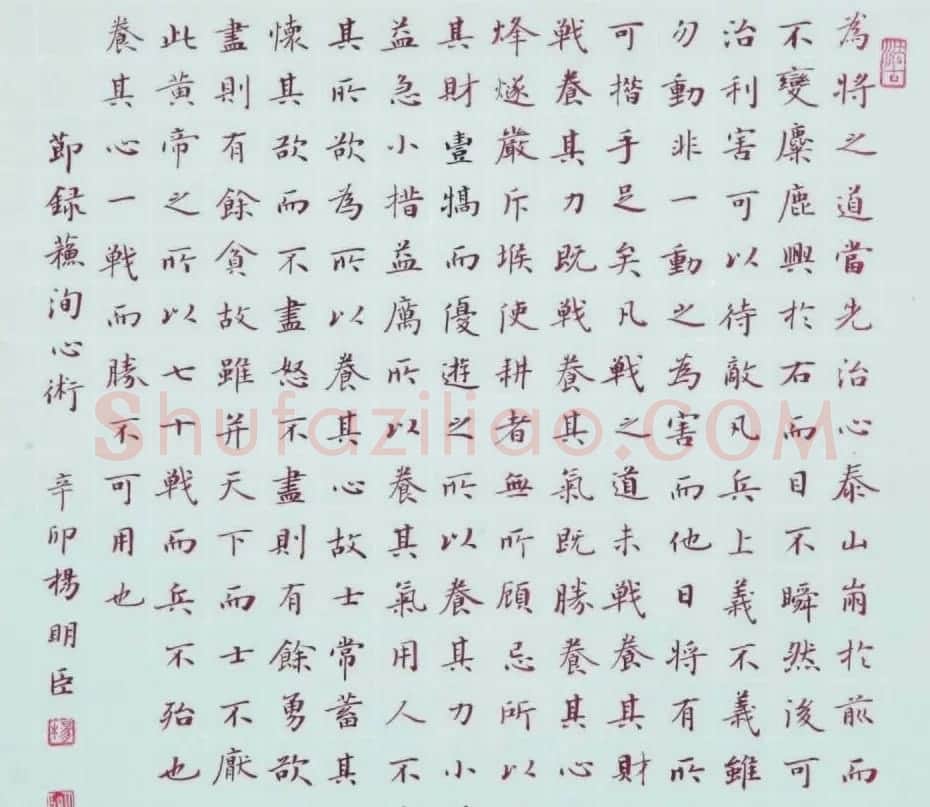 為將之道當先治心泰山崩於前而
不變麋鹿興於右而目不瞬然後可
治利害可以待敵凡兵上義不義雖
勿動非一動之為害而他日將有所
可措手足矣凡戦之道未戦養其財
戦養其力既戦養其氣既勝養其心
烽燧嚴斥堠使耕者無所顧忌所以
其財豐犒而優遊之所以養其力小
益急小措益厲所以養其氣用人不
其所欲為所以養其心故士常蓄其
懷其欲而不盡怒不盡則有餘勇欲
盡則有餘貪故雖并天下而士不厭
此黃帝之所以七十戦而兵不殆也
養其心一戦而勝不可用也
節録蘇洵心術 辛卯楊明臣
Shufaziliao.COM